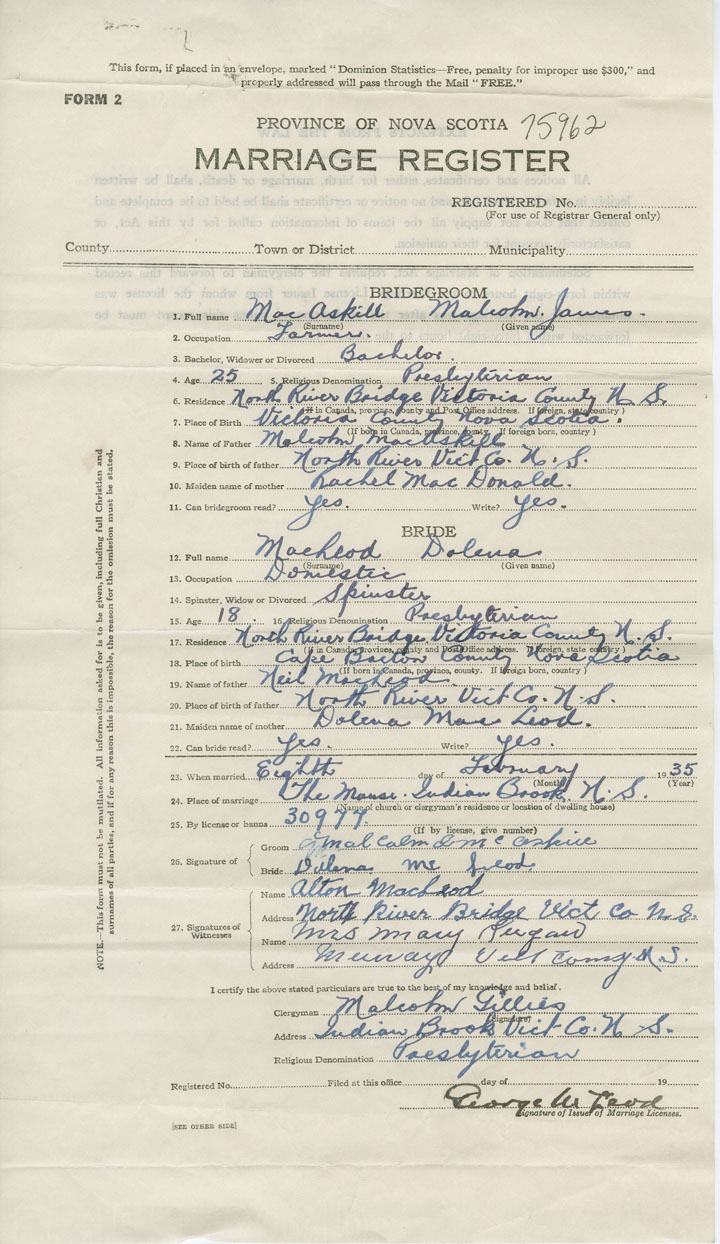 This form, if placed in an envelope, marked "Dominion Statistics—Free, penalty for improper use $300," and
properly addressed will pass through the Mail "FREE."
FORM 2
PROVINCE OF NOVA SCOTIA 75962
MARRIAGE REGISTER
REGISTERED No.
(For use of Registrar General only)
County Town or District Municipality
BRIDEGROOM
1. Full name MacAskill Malcolm James.
(Surname) (Given name)
2. Occupation Farmer.
3. Bachelor, Widower or Divorced Bachelor.
4. Age 25 5. Religious Denomination Presbyterian
6. Residence North River Bridge Victoria County N. S.
(If in Canada, province, county and Post Office address. If foreign, state country)
7. Place of Birth Victoria County Nova Scotia.
(If born in Canada, province, county. If foreign born, country)
8. Name of Father Malcolm MacAskill
9. Place of birth of father North River Vict Co. N. S.
10. Maiden name of mother Rachel Mac Donald.
11. Can bridegroom read? Yes. Write? Yes.
BRIDE
12. Full name MacLeod Dolena
(Surname) (Given name)
13. Occupation Domestic
14. Spinster, Widow or Divorced Spinster
15. Age 18. 16. Religious Denomination Presbyterian
17. Residence North River Bridge Victoria County N. S.
(If in Canada, province, county and Post Office address. If foreign, state country)
18. Place of birth Cape Breton County Nova Scotia
(If born in Canada, province, county. If foreign born, country)
19. Name of father Neil MacLeod.
20. Place of birth of father North River Vict Co. N. S.
21. Maiden name of mother Dolena Mac Leod.
22. Can bride read? Yes. Write? Yes.
23. When married Eighth day of February 1935
(Month) (Year)
24. Place of marriage The Manse. Indian Brook, N. S.
(Name of church or clergyman's residence or location of dwelling house)
25. By license or banns 30977.
(If by license, give number)
26. Signature of
Groom Malcolm J Mc askill
Bride Dolena Mc Leod.
27. Signatures of Witnesses
Name Alton MacLeod
Address North River Bridge Vict Co N.S.
Name Mrs Mary
Address Murray Vict County N.S.
I certify the above stated particulars are true to the best of my knowledge and belief.
Clergyman Malcolm Gillies
(Signature)
Address Indian Brook Vict Co. N. S.
Religious Denomination Presbyterian
Registered No. Filed at this office day of 19
George McLeod
Signature of Issuer of Marriage Licenses.
[SEE OTHER SIDE]
NOTE.—This form must not be mutilated. All information asked for is to be given, including full Christian and
surnames of all parties, and if for any reason this is impossible, the reason for the omission must be stated.